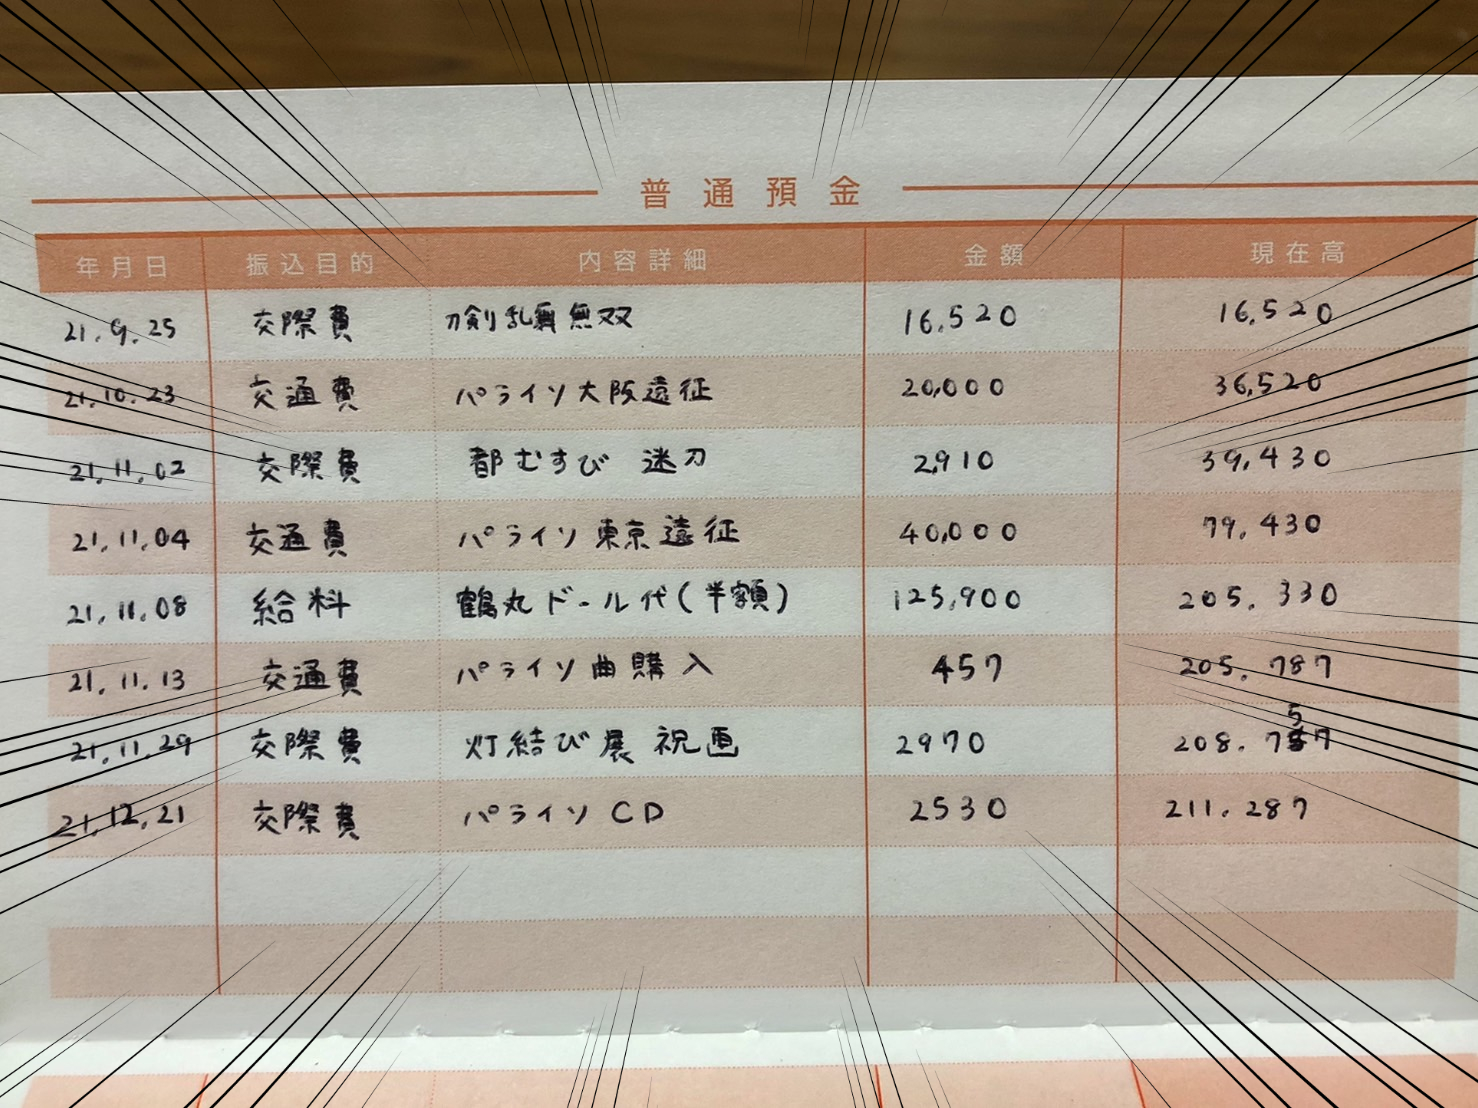 普通預金
年月日 振込目的 内容詳細 金額 現在高
21.9.25 交際費 刀剣乱舞無双 16,520 16,520
21.10.23 交通費 パライソ大阪遠征 20,000 36,520
21.11.02 交際費 都むすび 迷刀 2,910 39,430
21.11.04 交通費 パライソ東京遠征 40,000 79,430
21.11.08 給料 鶴丸ドール代(半額) 125,900 205.330
21.11.13 交通費 パライソ曲購入 457 205.787
21.11.29 交際費 灯結び展 祝画 2970 208.757
21.12.21 交際費 パライソCD 2530 211.287